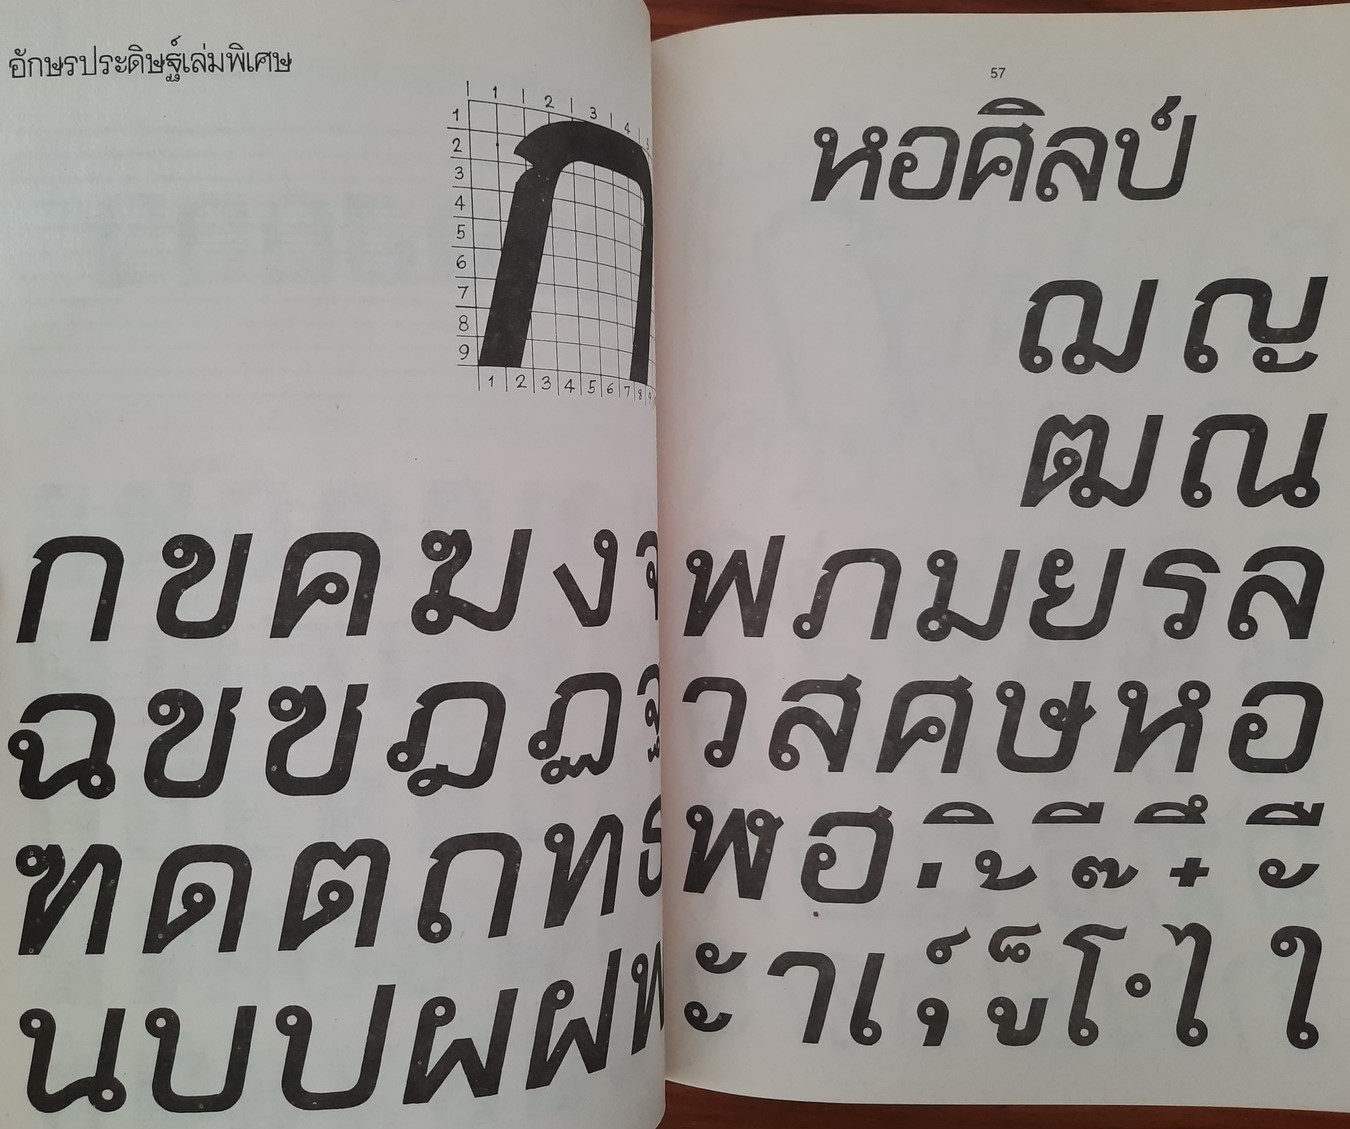 อักษรประดิษฐ์เล่มพิเศษ
1 2 3 4 5
1
2
3
4
5
6
7
8
9
1 2 3 4 5 6 7 8 9
ก ข ค ฆ ง จ
ฉ ช ซ ฎ ฏ ฐ
ฑ ด ต ถ ท ธ
น บ ป ผ ฝ ท
57
หอศิลป์
ฌ ญ
ฒ ณ
พ ภ ม ย ร ล
ว ส ศ ษ ห อ
ฬ ฮ ิ ี ึ ื
่ ้ ๊ ๋
ะ า เ ์ ็ โ ไ ใ
ุ ู ํ